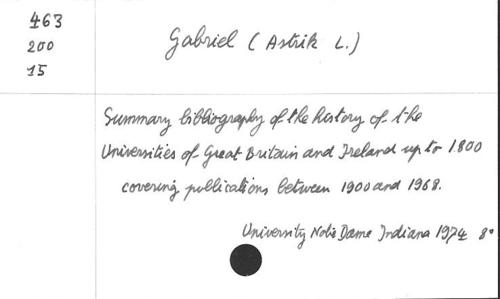 463
200
15
Gabriel (Astrik L.)
Summary bibliography of the history of the
Universities of Great Britain and Ireland up to 1.800
covering publications between 1900 and 1968.
University Notre Dame Indiana 1974 8°